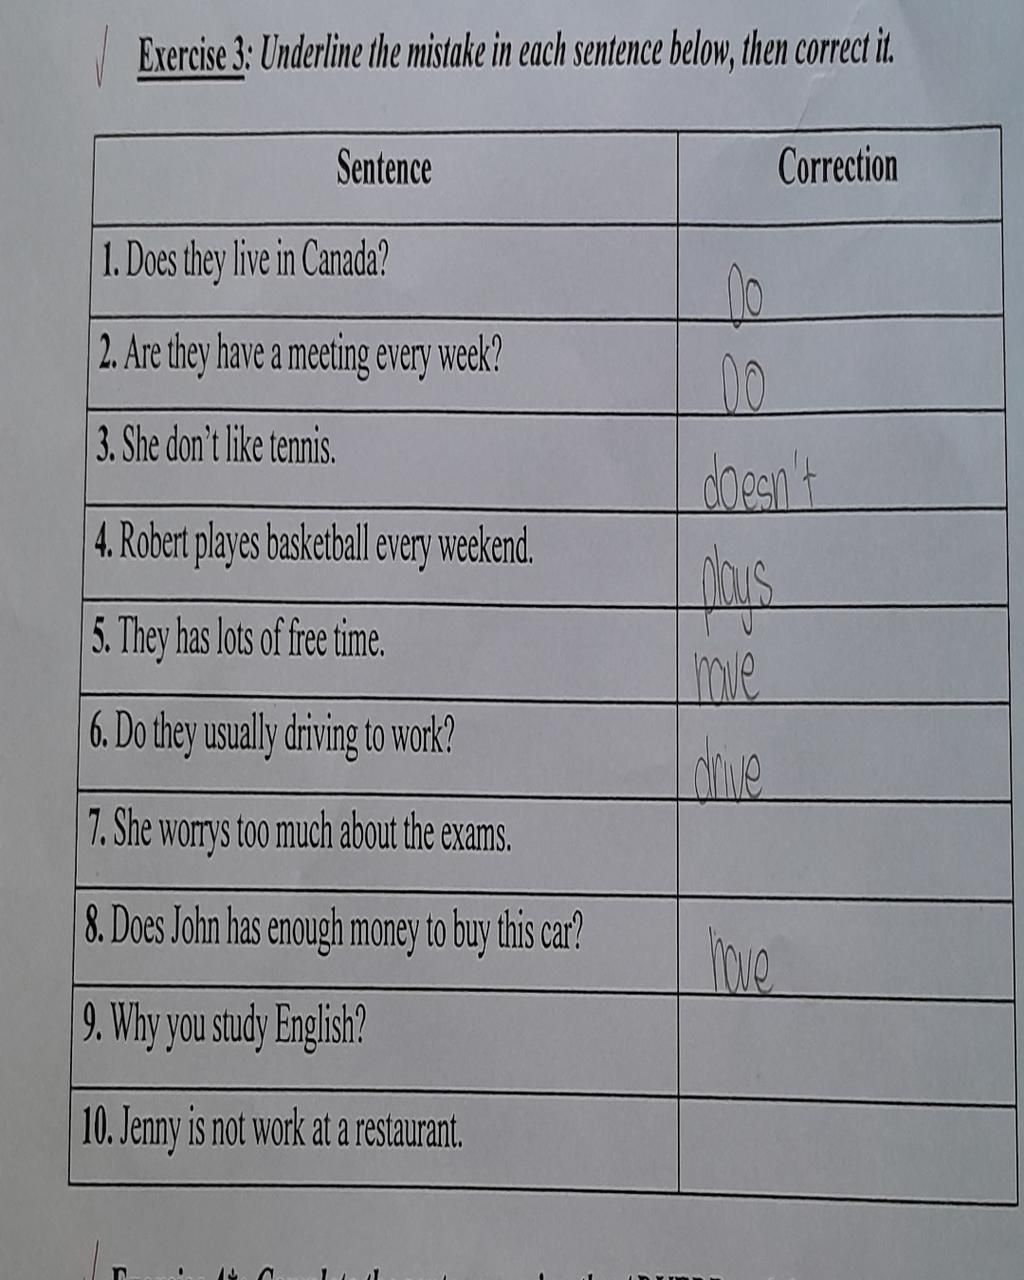 Exercise 3: Underline the mistake in each sentence below, then correct it.
Sentence Correction
1. Does they live in Canada? Do
2. Are they have a meeting every week? DO
3. She don't like tennis. doesn't
4. Robert playes basketball every weekend. plays
5. They has lots of free time. have
6. Do they usually driving to work? drive
7. She worrys too much about the exams.
8. Does John has enough money to buy this car? have
9. Why you study English?
10. Jenny is not work at a restaurant.